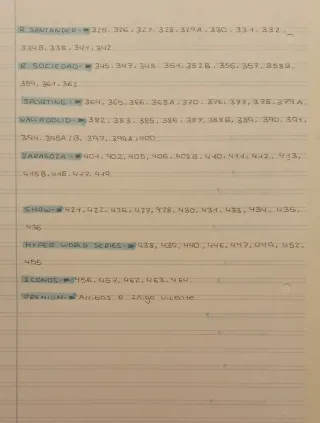 R. SANTANDER → 325, 326, 327, 328, 329A, 330, 331, 332,
334B, 338, 341, 342
R. SOCIEDAD → 345, 347, 348, 351, 352B, 356, 357, 358B,
359, 361, 362
SPORTING → 364, 365, 366, 368A, 370, 376, 377, 378, 379A
VALLADOLID → 382, 383, 385, 386, 387, 388B, 389, 390, 391,
394, 395A/B, 397, 399A, 400
ZARAGOZA → 401, 402, 405, 406, 408B, 410, 411, 412, 413,
415B, 416, 417, 419
SHOW → 421, 422, 426, 427, 428, 430, 431, 433, 434, 435,
436
HYPER WORLD SERIES → 438, 439, 440, 446, 447, 449, 452,
455
ICONOS → 456, 457, 462, 463, 464
PREMIUM → Arribas e Iñigo Vicente